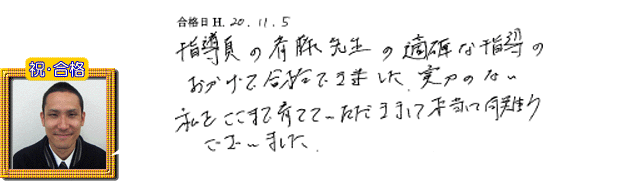 合格日 H. 20. 11. 5
指導員の斉藤先生の適確な指導の
おかげで合格できました。実力のない
私をここまで育てていただきまして本当に有難う
ございました。
祝・合格